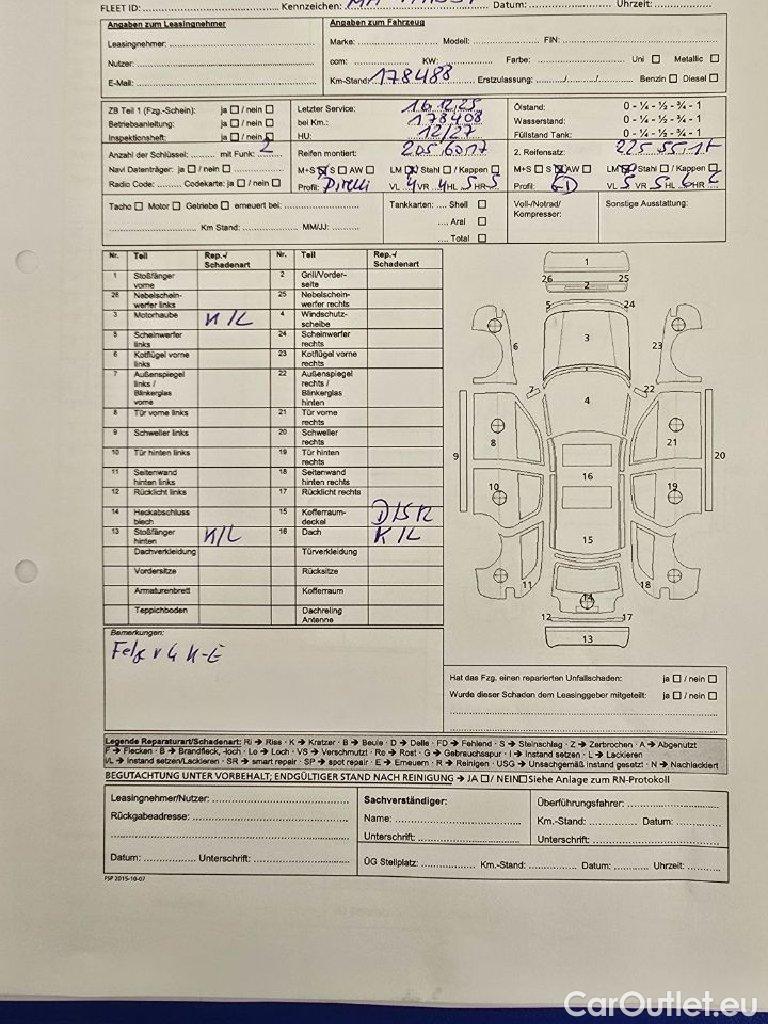 FLEET ID: Kennzeichen: Datum: Uhrzeit:
Angaben zum Leasingnehmer
Leasingnehmer:
Nutzer:
E-Mail:
Angaben zum Fahrzeug
Marke: Modell: FIN:
ccm: KW: Farbe: Uni Metallic
Km-Stand: 178488 Erstzulassung: / / Benzin Diesel
ZB Teil 1 (Fzg.-Schein): ja / nein
Betriebsanleitung: ja / nein
Inspektionsheft: ja / nein
Letzter Service: 16.12.25
bei Km.: 178408
HU: 12/27
Ölstand: 0 - ¼ - ½ - ¾ - 1
Wasserstand: 0 - ¼ - ½ - ¾ - 1
Füllstand Tank: 0 - ¼ - ½ - ¾ - 1
Anzahl der Schlüssel: mit Funk: 2
Navi Datenträger: ja / nein
Radio Code: Codekarte: ja / nein
Reifen montiert: 205 60 17
M+S S AW LM Stahl / Kappen
Profil: Pirelli VL 4 VR 4 HL 5 HR 5
2. Reifensatz: 225 55 17
M+S S AW LM Stahl / Kappen
Profil: VL 5 VR 5 HL 6 HR 6
Tacho Motor Getriebe erneuert bei:
Km Stand: MM/JJ:
Tankkarten: Shell
Aral
Total
Voll-/Notrad/
Kompressor:
Sonstige Ausstattung:
Nr. Teil Rep.-/ Schadenart Nr. Teil Rep.-/ Schadenart
1 Stoßfänger vorne 2 Grill/Vorder-seite
26 Nebelschein-werfer links 25 Nebelschein-werfer rechts
3 Motorhaube K/L 4 Windschutz-scheibe
5 Scheinwerfer links 24 Scheinwerfer rechts
6 Kotflügel vorne links 23 Kotflügel vorne rechts
7 Außenspiegel links / Blinkerglas vorne 22 Außenspiegel rechts / Blinkerglas hinten
8 Tür vorne links 21 Tür vorne rechts
9 Schweller links 20 Schweller rechts
10 Tür hinten links 19 Tür hinten rechts
11 Seitenwand hinten links 18 Seitenwand hinten rechts
12 Rücklicht links 17 Rücklicht rechts
14 Heckabschluss blech 15 Kofferraum-deckel D/SR
13 Stoßfänger hinten K/L 16 Dach K/L
Dachverkleidung Türverkleidung
Vordersitze Rücksitze
Armaturenbrett Kofferraum
Teppichboden Dachreling Antenne
1
26 25
2
5 24
3
6 23
7 22
4
8 21
9 20
16
10 19
15
11 18
14
12 17
13
Bemerkungen:
Hat das Fzg. einen reparierten Unfallschaden: ja / nein
Wurde dieser Schaden dem Leasinggeber mitgeteilt: ja / nein
Legende Reparaturart/Schadenart: Ri → Riss · K → Kratzer · B → Beule · D → Delle · FD → Fehlend · S → Steinschlag · Z → Zerbrochen · A → Abgenutzt
F → Flecken · B → Brandfleck, -loch · Lo → Loch · VS → Verschmutzt · Ro → Rost · G → Gebrauchsspur · I → Instand setzen · L → Lackieren
I/L → Instand setzen/Lackieren · SR → smart repair · SP → spot repair · E → Erneuern · R → Reinigen · USG → Unsachgemäß instand gesetzt · N → Nachlackiert
BEGUTACHTUNG UNTER VORBEHALT; ENDGÜLTIGER STAND NACH REINIGUNG → JA / NEIN Siehe Anlage zum RN-Protokoll
Leasingnehmer/Nutzer:
Rückgabeadresse:
Datum: Unterschrift:
Sachverständiger:
Name:
Unterschrift:
Überführungsfahrer:
Km.-Stand: Datum:
Unterschrift:
ÜG Stellplatz: Km.-Stand: Datum: Uhrzeit:
FSP 2015-10-07
CarOutlet.eu